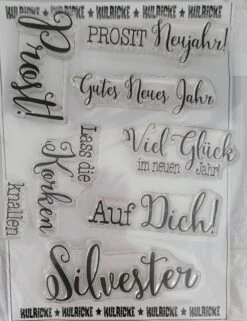 KULRICKE ★ KULRICKE ★ KULRICKE
Prost!
PROSIT Neujahr!
Gutes Neues Jahr
Lass die
Korken
knallen!
Viel Glück
im neuen Jahr!
Auf Dich!
Silvester
KULRICKE ★ KULRICKE ★ KULRICKE